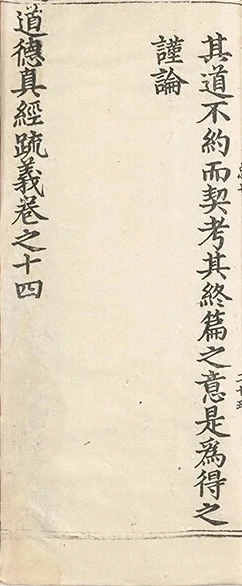 其道不約而契考其終篇之意是爲得之
謹論
道德真經䟽義卷之十四